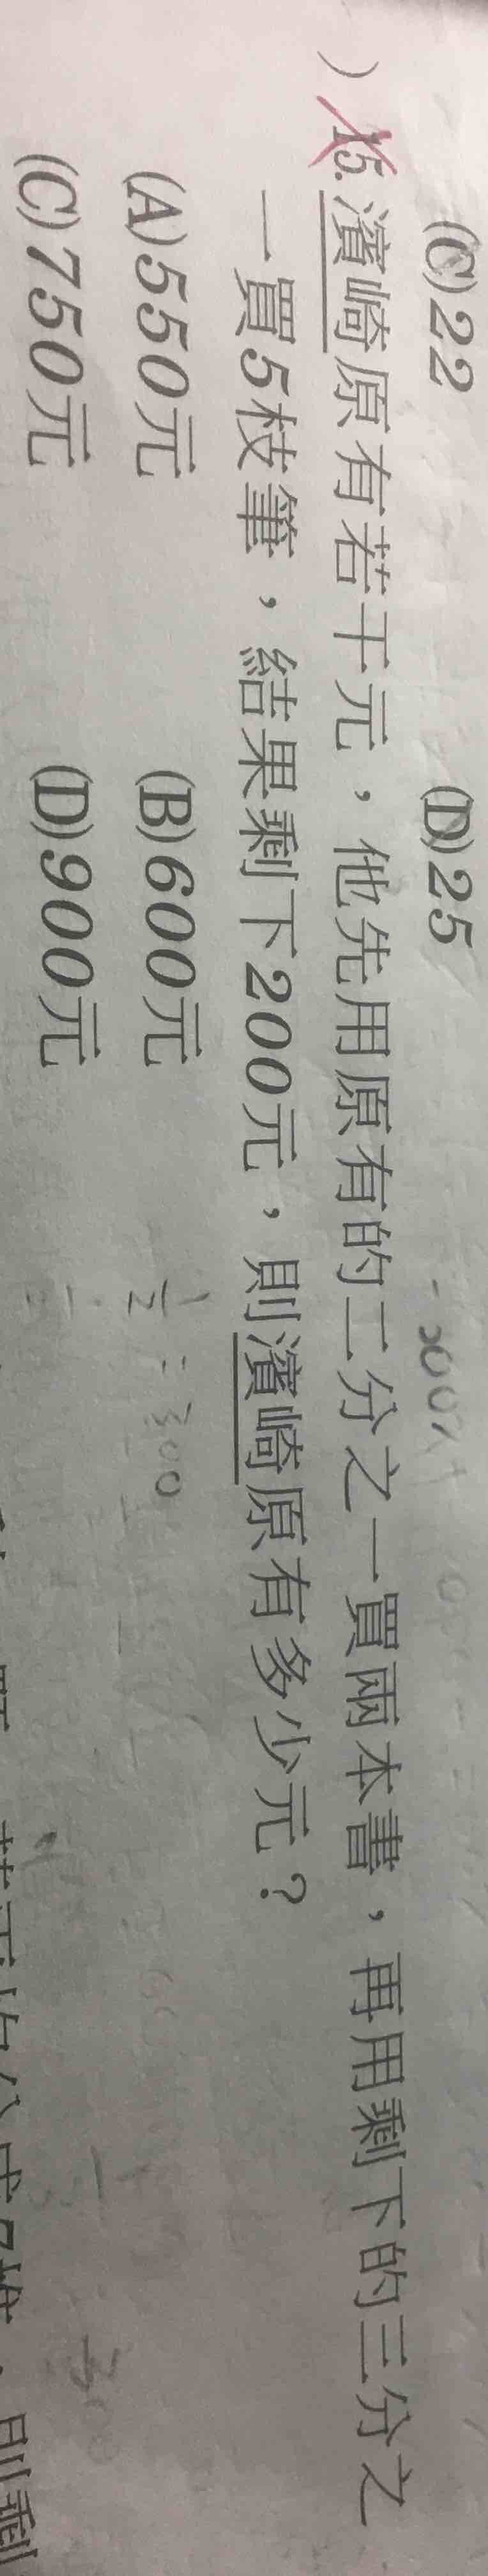 (C)22 (D)25
)15.濱崎原有若干元，他先用原有的二分之一買兩本書，再用剩下的三分之
一買5枝筆，結果剩下200元，則濱崎原有多少元？
(A)550元 (B)600元
(C)750元 (D)900元
1/2 = 300